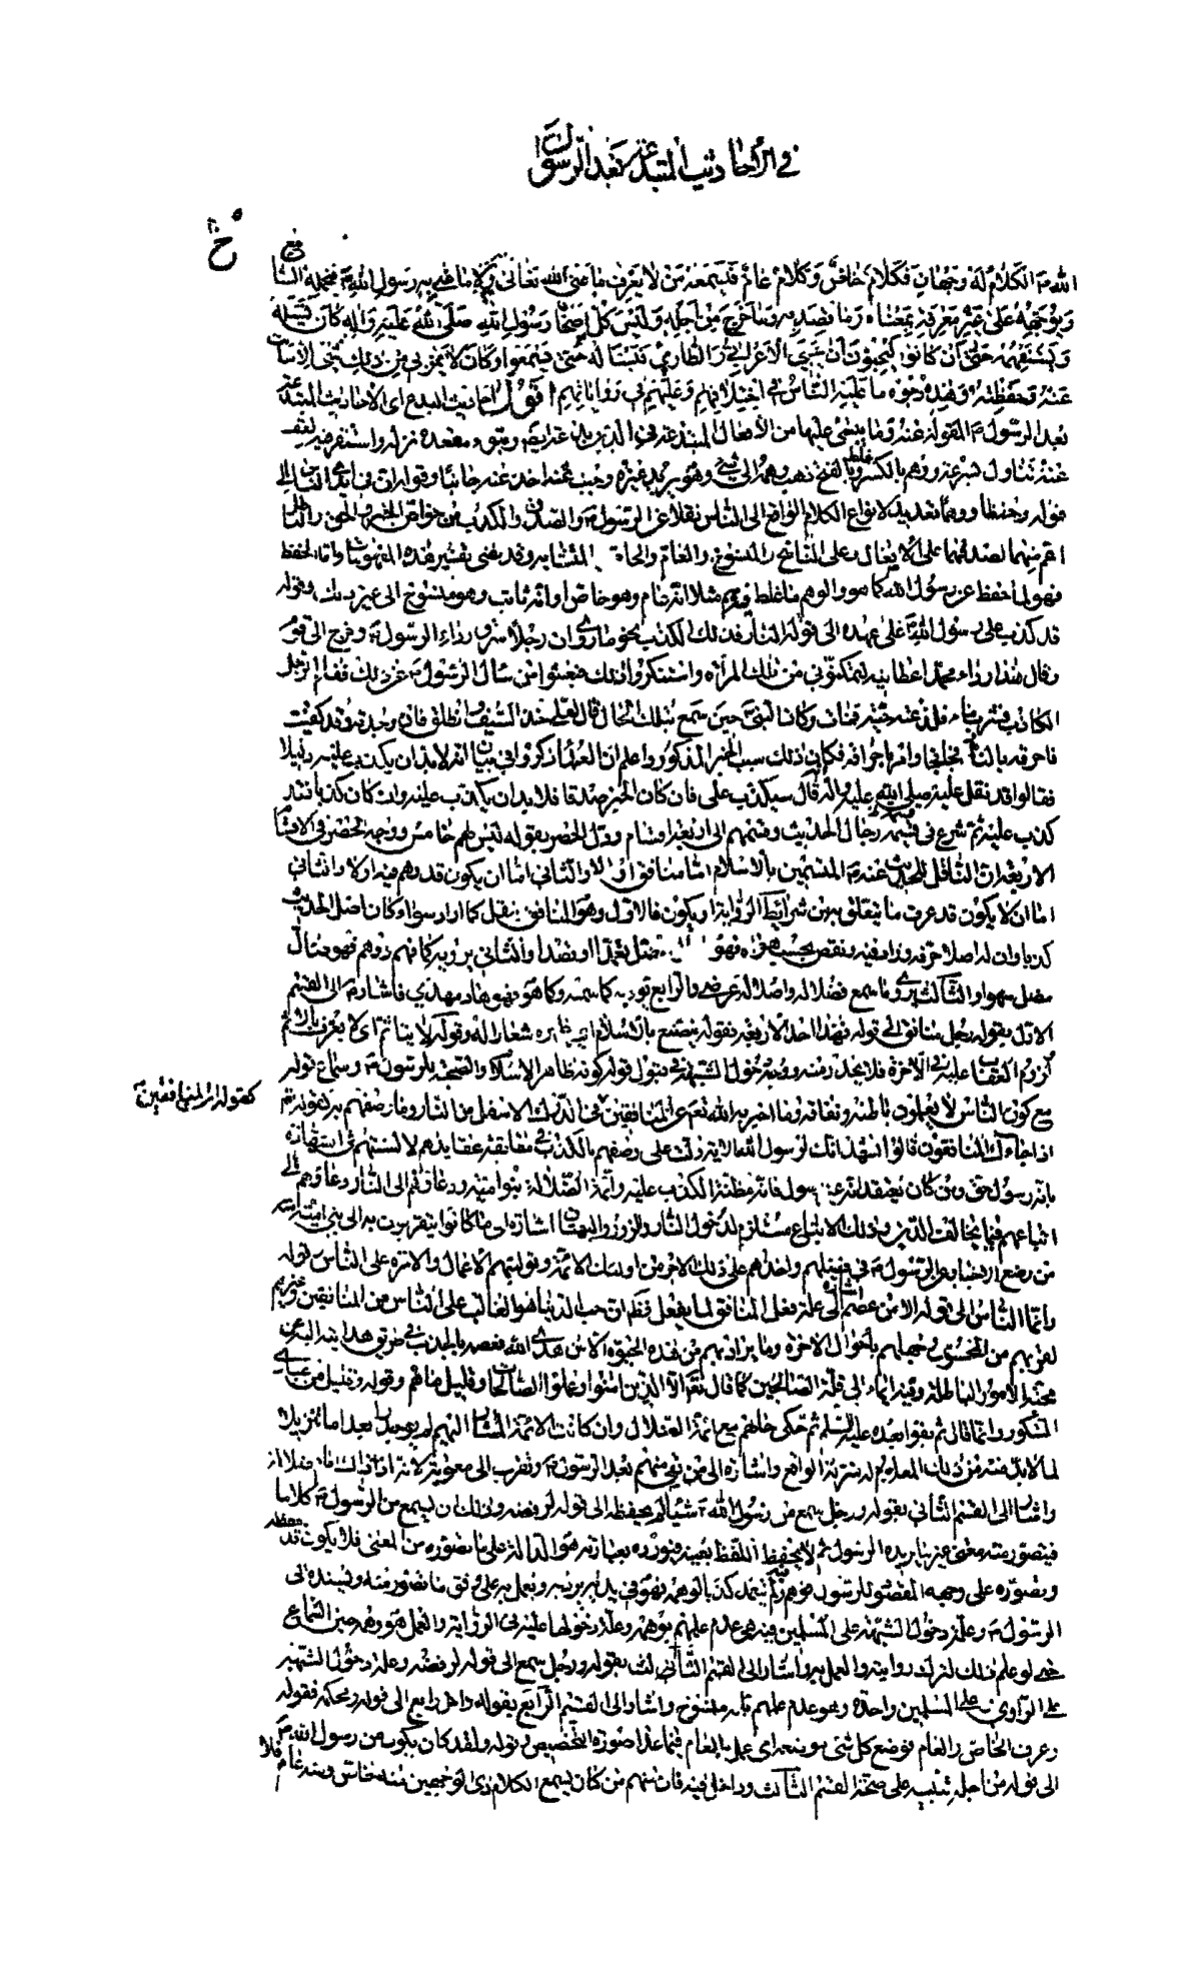 في الأحاديث المبتدعة بعد الرسول
الله ص الكلام له وجهان فكلام خاص وكلام عام فيسمعه من لا يعرف ما عنى الله تعالى به ولا ما عنى به رسول الله ص فيحمله السامع
ويوجهه على غير معرفة بمعناه وما قصد به وما خرج من أجله وليس كل أصحاب رسول الله صلى الله عليه وآله كان يسأله
ويستفهمه حتى أن كانوا ليحبون أن يجيئ الأعرابي والطارئ فيسأله حتى يسمعوا وكان لا يمر بي من ذلك شيء إلا سألت
عنه وحفظته وهذه وجوه ما عليه الناس في اختلافهم وعللهم في رواياتهم أقول أحاديث البدع أي الأحاديث المبتدعة
بعد الرسول ص المنقولة عنه وما يبتني عليها من الأفعال المبتدعة في الدين
قوله وحفظا ووهما تعديد لأنواع الكلام الواقع إلى الناس نقلا عن الرسول ص والصدق والكذب من خواص الخبر والحق والباطل
أعم منهما لصدقهما على الأفعال وعلى الناسخ والمنسوخ والعام والخاص المتشابه وقد مضى تفسير هذه المفهومات وأما الحفظ
فهو ما حفظ عن رسول الله كما هو والوهم ما غلط فيه مثلا انه عام وهو خاص أو انه ثابت وهو منسوخ إلى غير ذلك وقوله
قد كذب على رسول الله ص على عهده إلى قوله النار فذلك الكذب نحو ما روي ان رجلا سرق رداء الرسول ص وخرج إلى قوم
وقال هذا رداء محمد أعطانيه لتمكنوني من تلك المرأة واستنكروا ذلك فبعثوا من سأل الرسول ص عن ذلك فقام الرجل
الكاذب فشرب ماء فلدغته حية فمات وكان النبي حين سمع بتلك الحال قال لعلي خذ السيف وانطلق فان وجدته وقد كفيت
فاحرقه بالنار فجاءه وأمر بإحراقه فكان ذلك سبب الخبر المذكور واعلم ان العلماء ذكروا في بيان انه لا بد ان يكذب عليه دليلا
فقالوا قد نقل عنه صلى الله عليه وآله قال سيكذب علي فان كان الخبر صدقا فلا بد ان يكذب عليه وان كان كذبا فقد
كذب عليه ثم شرع في قسمة رجال الحديث وقسمهم إلى أربعة أقسام ودل الحصر بقوله ليس لهم خامس ووجه الحصر في الأقسام
الأربعة ان الناقل للحديث عنه ص المتسمين بالإسلام اما منافق أو لا والثاني اما ان يكون قد وهم فيه أو لا والثاني
اما ان لا يكون قد عرف ما يتعلق به من شرائط الرواية أو يكون فالأول وهو المنافق ينقل كما أراد سواء كان أصل الحديث
كذبا أو ان له أصلا حرفه وزاد فيه ونقص بحسب هواه فهو ضال مضل تعمدا وقصدا والثاني يرويه كما فهم ووهم فهو ضال
مضل سهوا والثالث يروي ما سمع فضلاله وإضلاله عرضي والرابع يؤديه كما سمعه وكما هو فهو هاد مهدي فأشار ص إلى القسم
الأول بقوله رجل منافق إلى قوله فهذا أحد الأربعة فقوله متصنع بالإسلام أي يظهره شعارا له وقوله لا يتأثم أي لا يعرف بالاثم
لزوم العقاب عليه في الآخرة فلا يحذر منه ووجه دخول الشبهة في قبول قوله كونه ظاهر الإسلام والصحبة للرسول ص وسماع قوله
مع كون الناس لا يعلمون باطنه ونفاقه وما أخبر به الله تعالى عن المنافقين في الدرك الأسفل من النار وما وصفهم به كقوله تعالى
كقوله ان المنافقين
إذا جاءك المنافقون قالوا نشهد انك لرسول الله الآية دلت على وصفهم بالكذب في مطابقة عقايدهم لألسنتهم في الشهادة
بأنه رسول حق ومن كان يعتقد انه غير رسول فانه مظنة الكذب عليه وأئمة الضلالة بنو أمية ودعاتهم إلى النار دعاؤهم إلى
اتباعهم فيما يخالف الدين وذلك الاتباع مستلزم لدخول النار والزور والبهتان إشارة إلى ما كانوا يتقربون به إلى بني أمية
من وضع الأخبار عن الرسول ص في فضلهم وأخذهم على ذلك الأجر من أولئك الأئمة وتوليتهم الأعمال والإمرة على الناس قوله
وإنما الناس إلى قوله إلا من عصم إشارة إلى علة فعل المنافق لما يفعل فظاهر ان حب الدنيا هو الغالب على الناس من المنافقين وغيرهم
لقربهم من المحسوس وجهلهم بأحوال الآخرة وما يراد بهم من هذه الحيوة إلا من هدى الله فعصمه بالجذب في طريق هدايته إليه عن
محبة الأمور الباطلة وفيه إيماء إلى قلة الصالحين كما قال تعالى إلا الذين آمنوا وعملوا الصالحات وقليل ما هم وقوله وقليل من عبادي
الشكور وإنما قال ثم بقوا بعده عليه السلم ثم حكى حالهم مع أئمة الضلال وان كانت الأئمة المشار إليهم لم يوجدوا بعد اما تنزيلا
لما لا بد منه من ذلك المعلوم له منزلة الواقع أو إشارة إلى من بقي منهم بعد الرسول ص وتقرب إلى معوية لأنه إذ ذاك إمام ضلالة
وأشار إلى القسم الثاني بقوله ورجل سمع من رسول الله ص شيئا لم يحفظه إلى قوله لرفضه وذلك ان يسمع من الرسول ص كلاما
فيتصور منه معنى غير ما يريده الرسول ثم لا يحفظ اللفظ بعينه فيورده بعبارته هو الدالة على ما تصوره من المعنى فلا يكون قد حفظه
وتصوره على وجهه المقصود للرسول فوهم فيه ولم يتعمد كذبا لوهمه فهو في يديه يرويه ويعمل به على وفق ما تصور منه ويسنده إلى
الرسول ص وعلة دخول الشبهة على المسلمين فيه هي عدم علمهم بوهمه وعلة دخولها عليه في الرواية والعمل هو وهمه حين السماع
حتى لو علم ذلك لترك روايته والعمل به وأشار إلى القسم الثالث بقوله ورجل سمع إلى قوله لرفضه وعلة دخول الشبهة
على الراوي وعلى المسلمين واحدة وهو عدم علمهم بأنه منسوخ وأشار إلى القسم الرابع بقوله وآخر رابع إلى قوله ومحكمه فقوله
وعرف الخاص والعام فوضع كل شيء موضعه أي عمل بالعام فيما عدا صورة التخصيص وقوله ولقد كان يكون من رسول الله ص
إلى قوله من أجله تنبيه على صحة القسم الثالث وداخل فيه فان منهم من كان يسمع الكلام ذي الوجهين منه خاص ومنه عام فلا